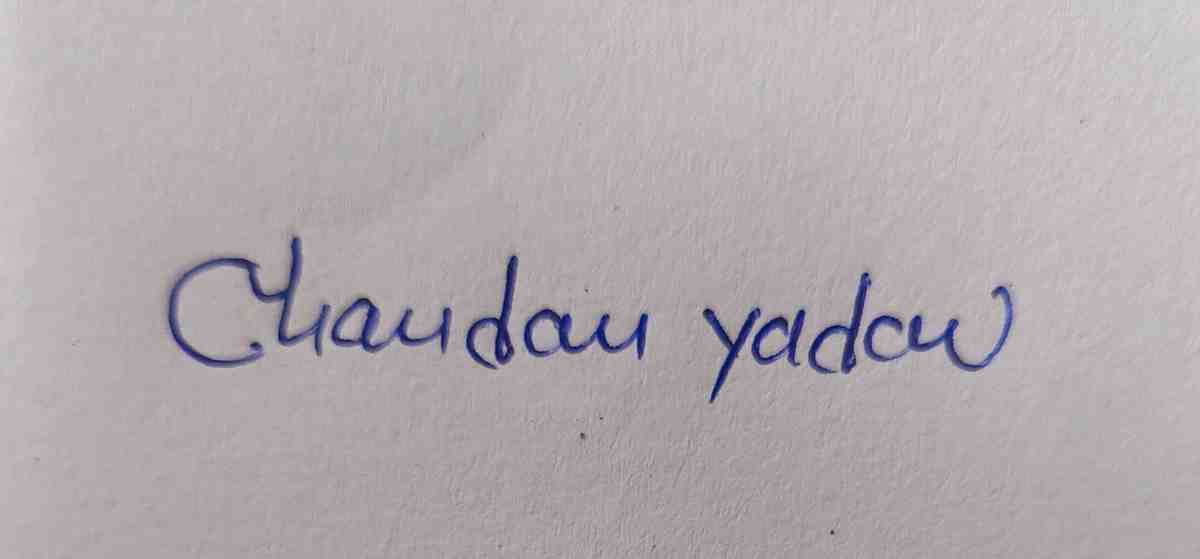 Chandan yadav